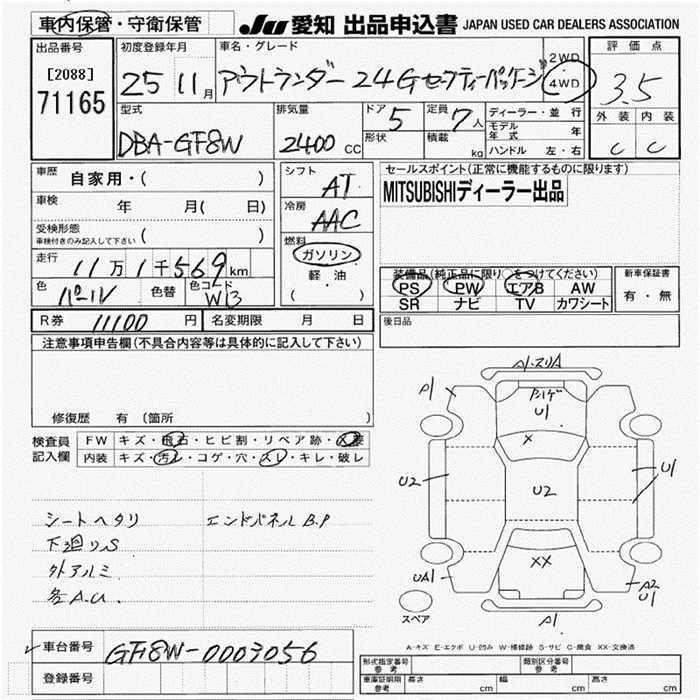 車内保管・守衛保管
JU 愛知 出品申込書 JAPAN USED CAR DEALERS ASSOCIATION
出品番号 初度登録年月 車名・グレード 評価点
[2088] 2WD
71165 25 11月 アウトランダー 24G セーフティーパッケージ 4WD 3.5
型式 排気量 ドア 5 定員 7人 ディーラー・並行 外装 内装
DBA-GF8W 2400 CC 形状 積載 kg モデル年式 年 C C
ハンドル 左・右
車歴 自家用・( ) シフト AT セールスポイント(正常に機能するものに限ります)
車検 年 月( 日) 冷房 AAC MITSUBISHIディーラー出品
受検形態 ( )
車検付きのみ記入して下さい
燃料 ガソリン
走行 11万1千569km 軽油 装備品(純正品に限り○をつけてください) 新車保証書
色 パール 色替 色コード W13 ( ) PS PW エアB AW 有・無
SR ナビ TV カワシート
R券 11100 円 名変期限 月 日 後日品
注意事項申告欄(不具合内容等は具体的に記入して下さい)
修復歴 有(箇所 )
検査員 FW キズ・飛石・ヒビ割・リペア跡・
記入欄 内装 キズ・汚レ・コゲ・穴・スレ・キレ・破レ
シートヘタリ エンドパネルB.P
下廻りS
外アルミ
各A.U.
A1・スリA
A1
U1
X
U2 U2 U1
XX
UA1 A2
U1
スペア A1
A-キズ E-エクボ U-凹み W-補修跡 S-サビ C-腐食 XX-交換済
車台番号 GF8W-0003056
登録番号
形式指定番号 参考 類別区分番号 参考
車庫証明用 参考 長さ cm 幅 cm 高さ cm